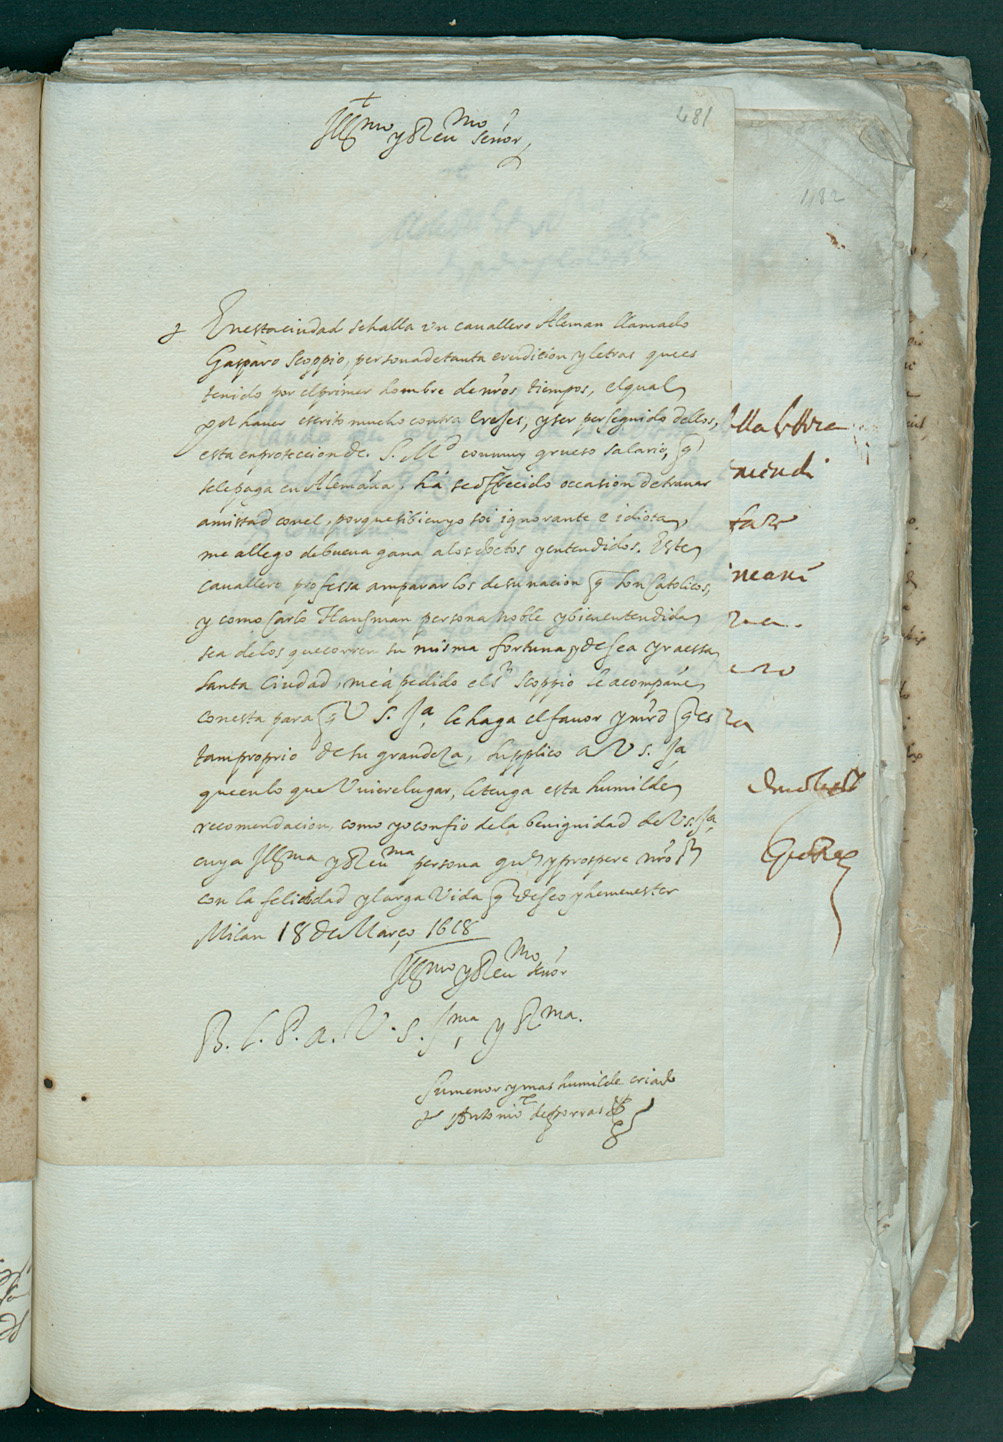 481
1182
+
Ill^mo y Reu^mo Señor,
En esta ciudad se halla vn cauallero Aleman llamado
Gasparo Scoppio, persona de tanta erudicion, y letras que es
tenido por el primer hombre de nr̃os tiempos, el qual
por hauer escrito mucho contra Ereges, y ser perseguido dellos,
esta en proteccion de S. M^d con muy grueso salario, q̃
se le paga en Alemana. há se ofrecido occasion de trauar
amistad con el, porque si bien yo soi ignorante e idiota,
me allego de buena gana a los doctos y entendidos. Este
cauallero professa amparar los de su nacion q̃ son Catolicos,
y como Carlo Hausman persona noble y bien entendida
sea de los que corren su misma fortuna, y desea yr a essa
santa Ciudad, me á pedido el s^r Scoppio le acompañe
con esta para q̃ V S. Ill^a, le haga el fauor y mr̃d q̃ es
tam proprio de su grandeza, supplico a V S. Ill^a
que en lo que Vuiere lugar, le tenga esta humilde
recomendacion, como yo confio de la benignidad de V. S. Ill^a,
cuya Ill^ma y Reu^ma persona gu^e y prospere nr̃o s^r
con la felicidad y larga Vida q̃ deseo y he menester
Milan 18 de Março 1618
Ill^mo y Reu^mo Señor
B. L. P. a. V. S. Ill^ma y R^ma.
Su menor y mas humilde criado
Antonio de Porras
lla lettera